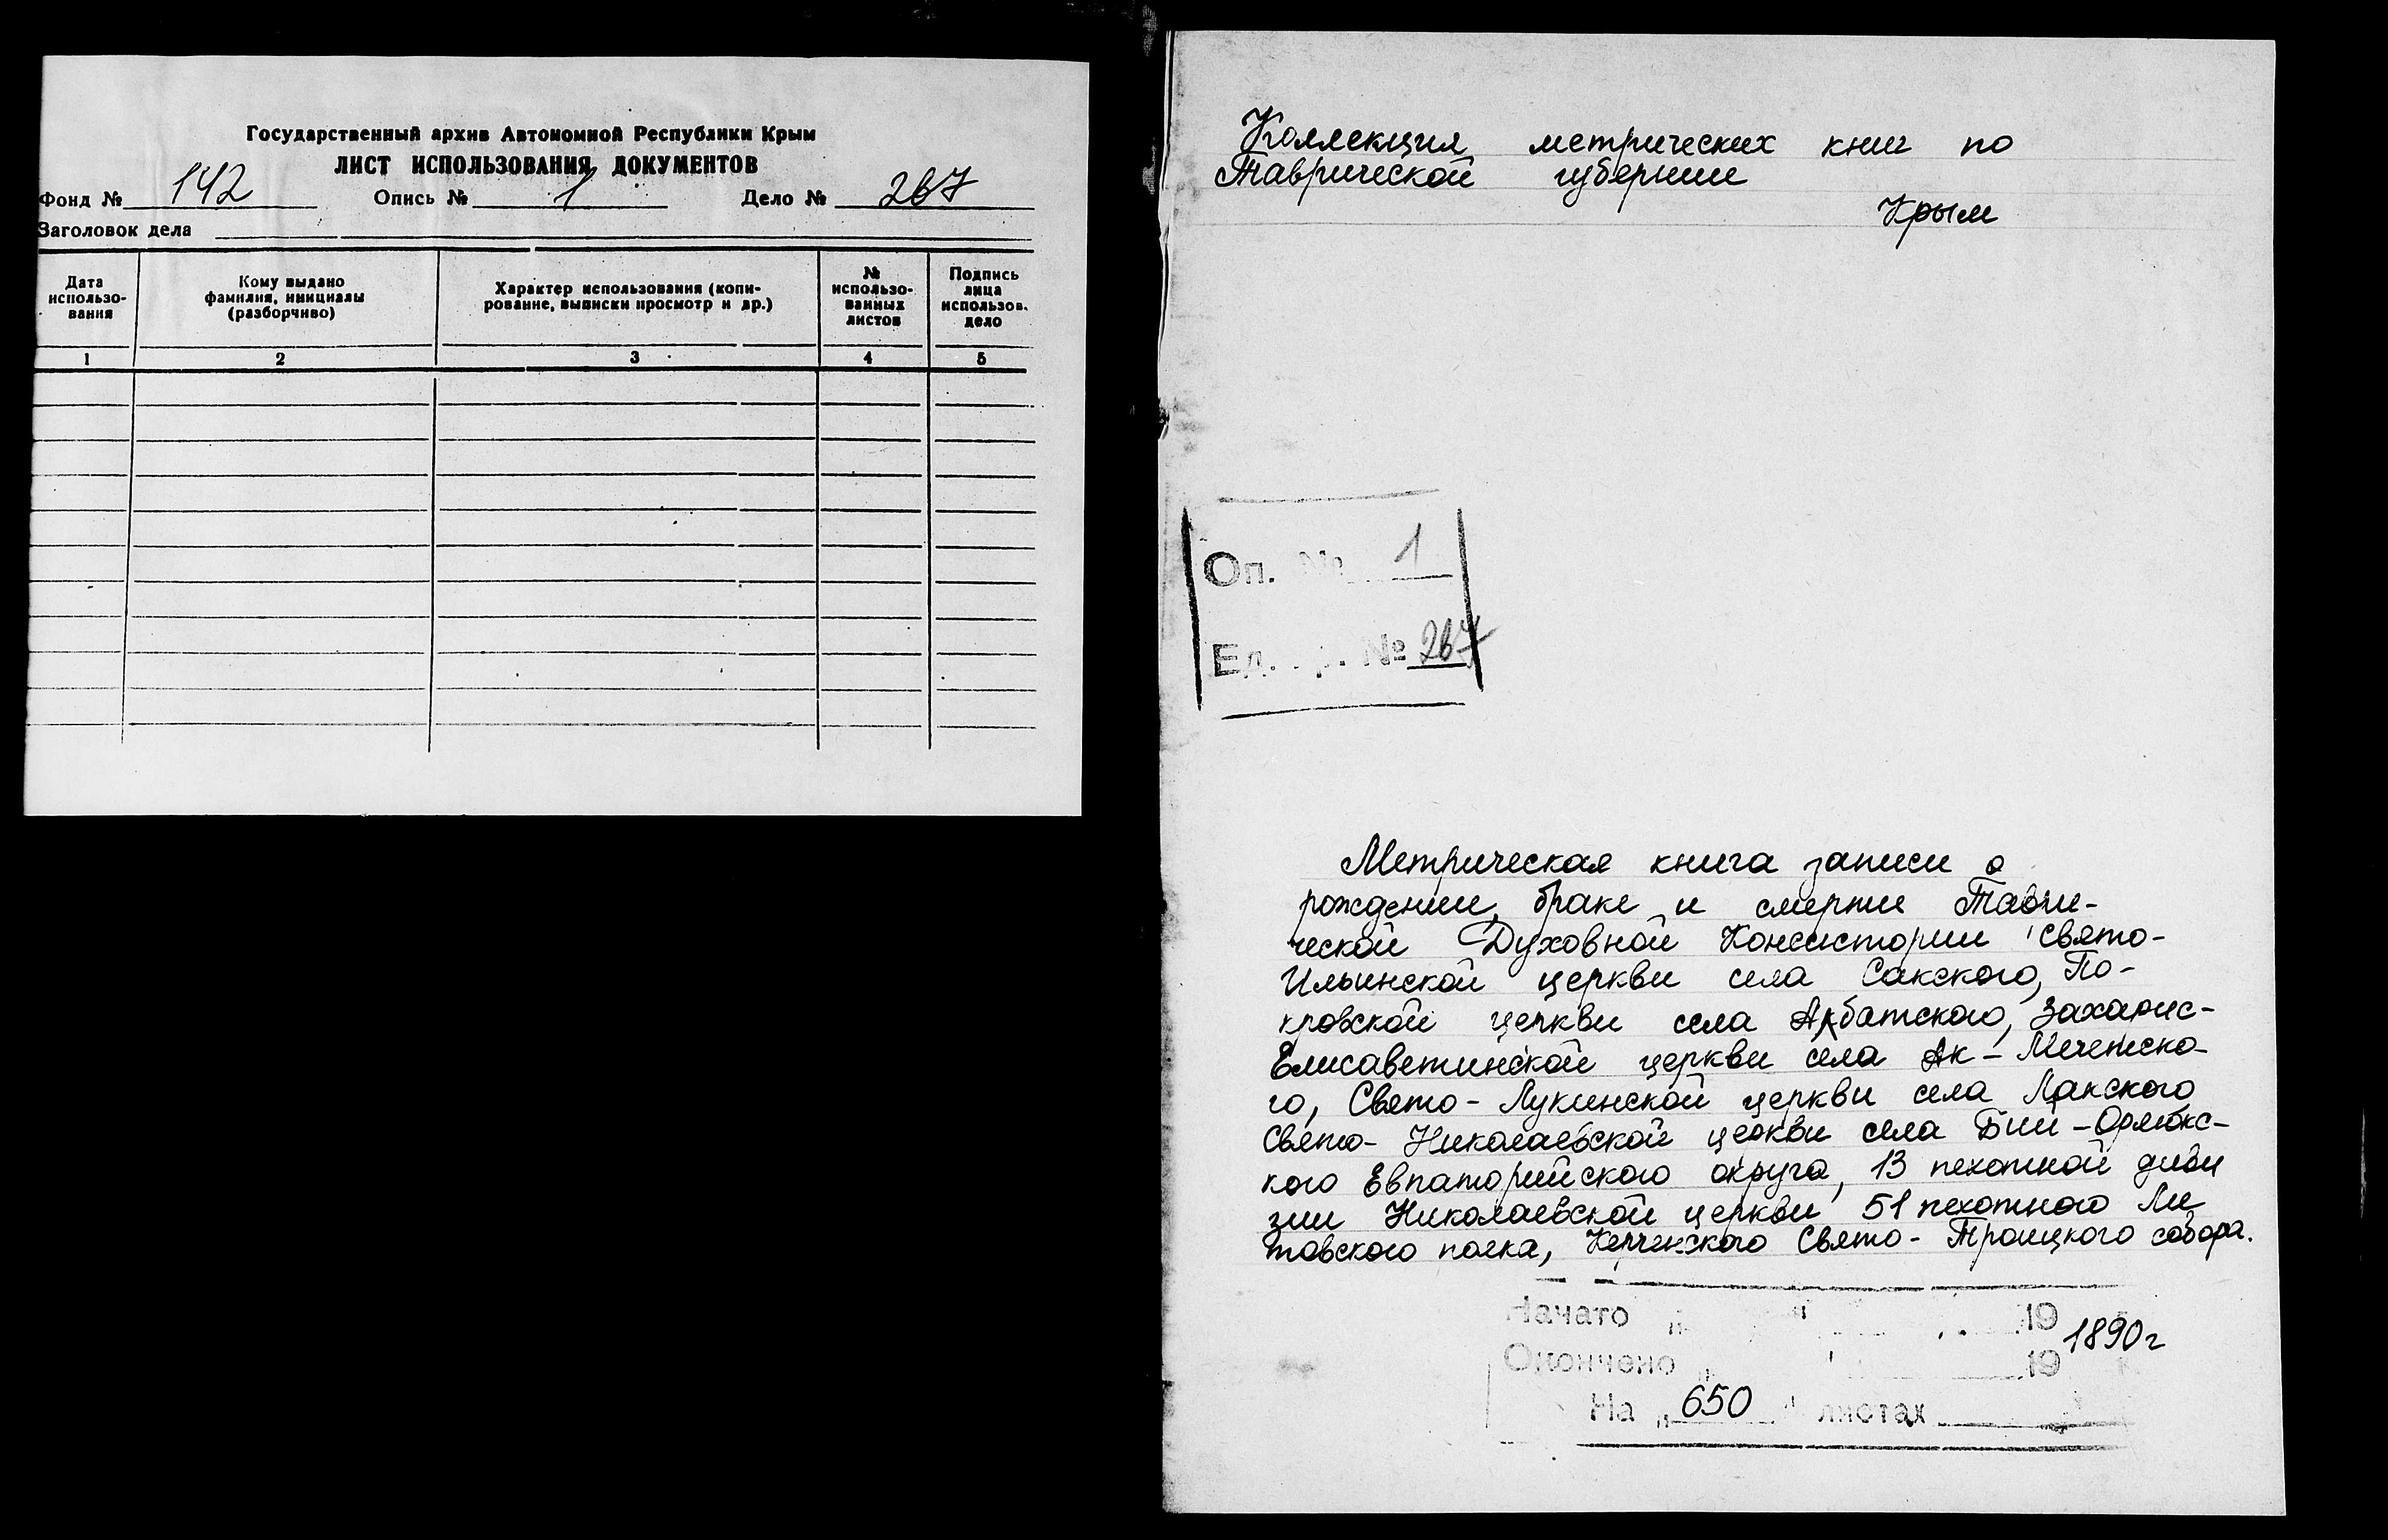 Государственный архив Автономной Республики Крым
ЛИСТ ИСПОЛЬЗОВАНИЯ ДОКУМЕНТОВ
Фонд № 142 Опись № 1 Дело № 267
Заголовок дела
Дата использо-вания
Кому выдано фамилия, инициалы (разборчиво)
Характер использования (копи-рование, выписки просмотр и др.)
№ использо-ванных листов
Подпись лица использов. дело
1 2 3 4 5
Коллекция метрических книг по
Таврической губернии
Крым
Оп. № 1
Ед. р. № 267
Метрическая книга записи о
рождении, браке и смерти Таври-
ческой Духовной Консистории Свято-
Ильинской церкви села Сакского, По-
кровской церкви села Акбатского, Захарис-
Елисаветинской церкви села Ак-Мечетско-
го, Свято-Лукинской церкви села Лакского
Свято-Николаевской церкви села Бий-Орлюкс-
кого Евпаторийского округа, 13 пехотной диви
зии Николаевской церкви 51 пехотного Ли
товского полка, Керченского Свято-Троицкого собора.
Начато " " 19
1890г
Окончено " " 19
На " 650 " листах